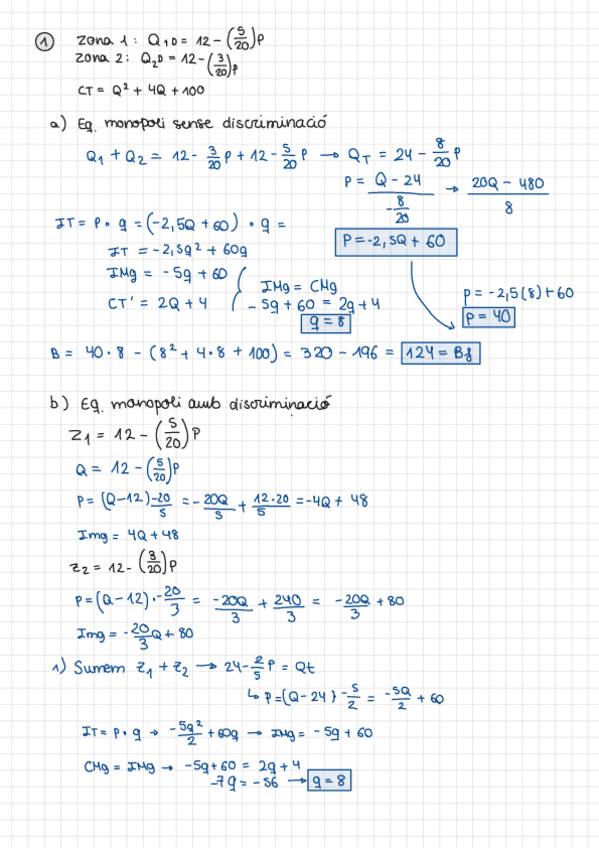 1 Zona 1: Q₁D = 12 - (5/20)P
Zona 2: Q₂D = 12 - (3/20)P
CT = Q² + 4Q + 100
a) Eq. monopoli sense discriminació
Q₁ + Q₂ = 12 - 3/20 P + 12 - 5/20 P → Q_T = 24 - 8/20 P
P = (Q - 24)/(-8/20) → (20Q - 480)/8
IT = P · q = (-2,5Q + 60) · q =
P = -2,5Q + 60
IT = -2,5q² + 60q
IMg = -5q + 60
CT' = 2Q + 4
IMg = CMg
-5q + 60 = 2q + 4
q = 8
P = -2,5(8) + 60
P = 40
B = 40 · 8 - (8² + 4 · 8 + 100) = 320 - 196 = 124 = Bf
b) Eq. monopoli amb discriminació
Z₁ = 12 - (5/20)P
Q = 12 - (5/20)P
P = (Q - 12) -20/5 = -20Q/5 + 12·20/5 = -4Q + 48
Img = 4Q + 48
Z₂ = 12 - (3/20)P
P = (Q - 12) · -20/3 = -20Q/3 + 240/3 = -20Q/3 + 80
Img = -20/3 Q + 80
1) Sumem Z₁ + Z₂ → 24 - 2/5 P = Qt
↳ P = (Q - 24) -5/2 = -5Q/2 + 60
IT = P · q → -5q²/2 + 60q → IMg = -5q + 60
CMg = IMg → -5q + 60 = 2q + 4
-7q = -56 → q = 8